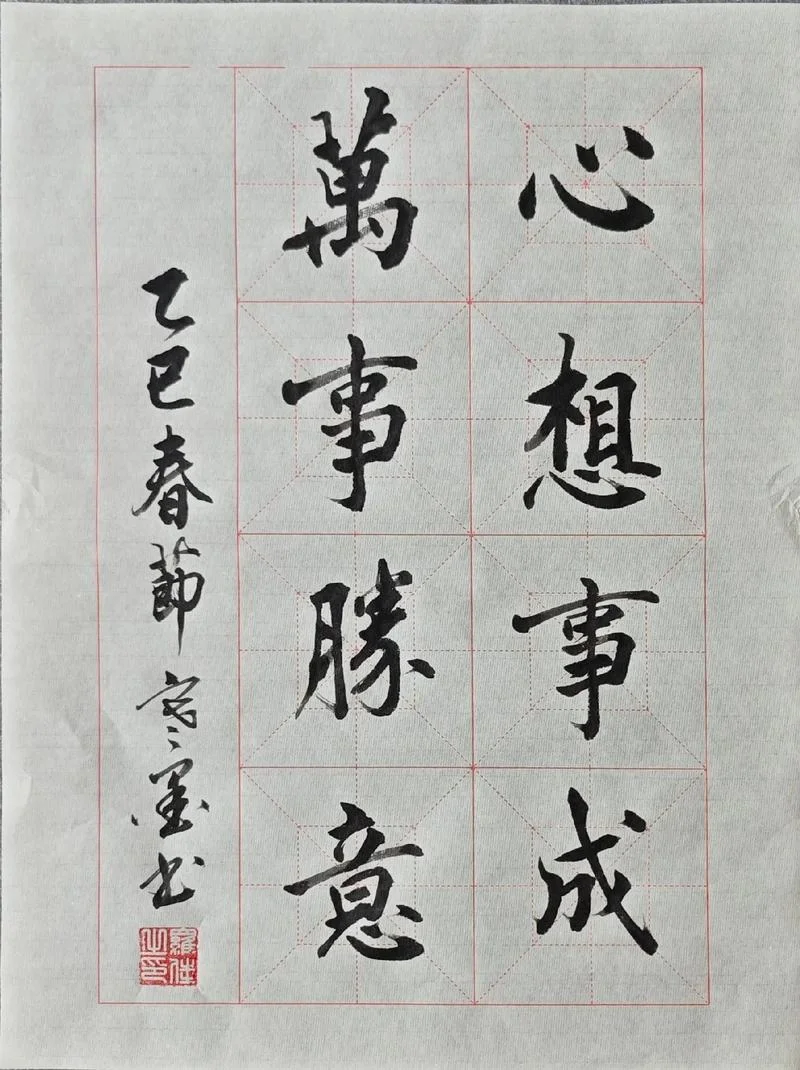 心想事成
萬事勝意
乙巳春節寒墨书